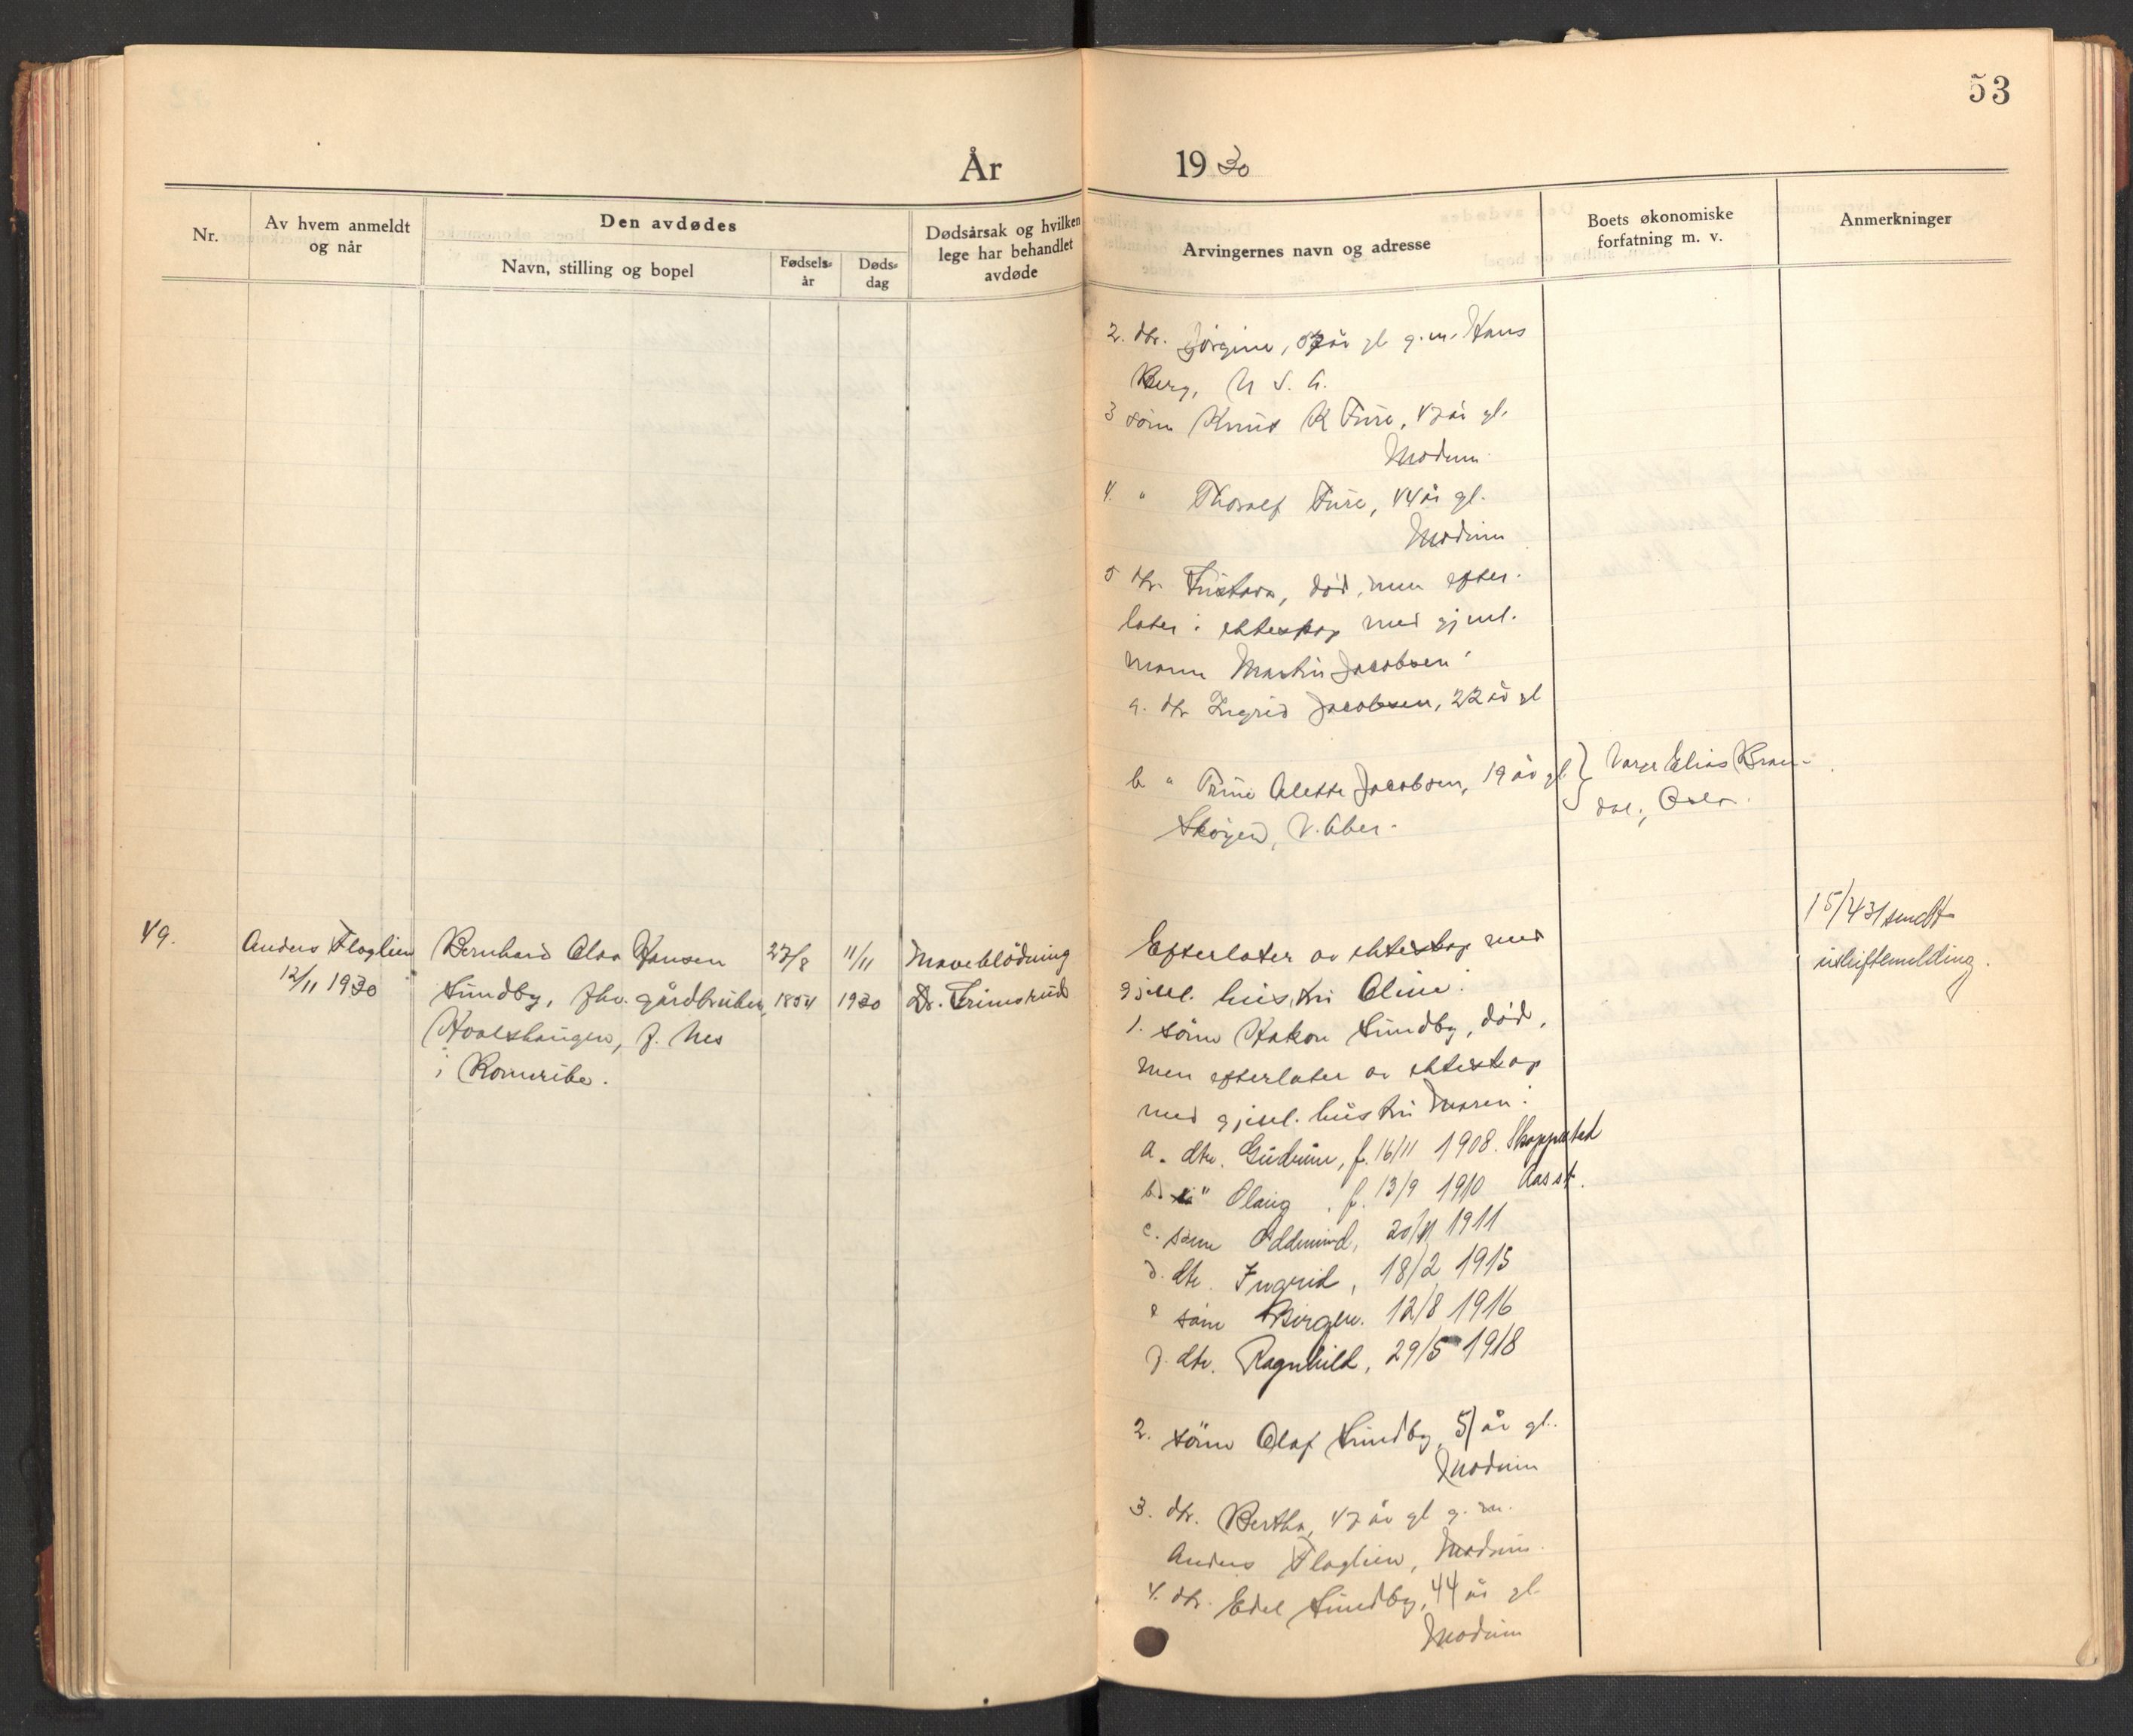 53
År 1930
Nr.
Av hvem anmeldt
og når
Den avdødes
Navn, stilling og bopel
Fødsels-
år
Døds-
dag
Dødsårsak og hvilken
lege har behandlet
avdøde
Arvingernes navn og adresse
Boets økonomiske
forfatning m. v.
Anmerkninger
2. dtr. Jörgine, år gl g.m. Hans
Berg, U. S. A.
3 sönn Knut K Fure, 47 år gl.
Modum
4. " Thoralf Fure, 44 år gl.
Modum
5 dtr. död, men efter-
later i ekteskap med gjenl.
mann Martin Jacobsen:
a. dtr Ingrid Jacobsen, 22 år gl
b " Alette Jacobsen, 19 år gl }
V. Aker.
Verge Elias
Oslo.
49.
Anders Flaglien
12/11 1930
Bernhard Olaa Hansen
Sundby, fhv. gårdbruker,
f. Nes
i Romerike.
27/8
1854
11/11
1930
Maveblödning
Dr. Trimsrud
Efterlater av ekteskap med
gjenl. hustru Oline:
1. sönn Hakon Sundby, död,
men efterlater av ekteskap
med gjenl. hustru Maren:
a. dtr. Gudrun, f. 16/11 1908. Skoppested
b. " Olaug, f. 13/9 1910 Aas st.
c. sönn Oddmund, 20/11 1911
d. dtr. Ingrid, 18/2 1915
e sönn Birger. 12/8 1916
f. dtr. Ragnhild, 29/5 1918
2. sönn Olaf Sundby, 51 år gl.
Modum
3. dtr. Bertha, 47 år gl g. m.
Anders Flaglien, Modum.
4. dtr. Edel Sundby, 44 år gl.
Modum
15/4 31 sendt
utskiftemelding.